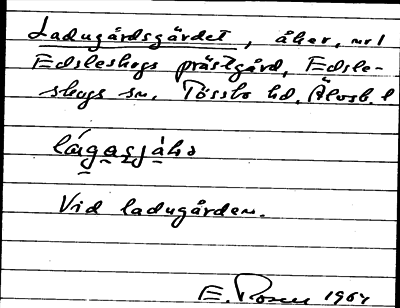 Ladugårdsgärdet, åker, nr 1
Edsleskogs prästgård, Edsle-
skogs sn. Tössbo hd. Älvsb. l
Vid ladugården.
E. Rosen 1964